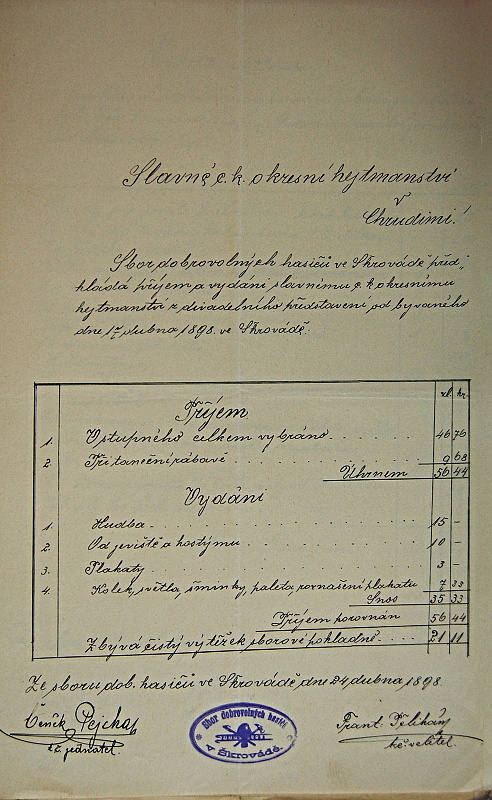 Slavné c. k. okresní hejtmanství
v
Chrudimi!
Sbor dobrovolných hasičů ve Škrovádě před„
kládá příjem a vydání slavnému c. k. okresnímu
hejtmanství z divadelního představení od bývaného
dne 17 dubna 1898. ve Škrovádě.
zl. kr.
Příjem
1. Vstupného celkem vybráno 46 76
2. Při taneční zábavě 9 68
Úhrnem 56 44
Vydání
1. Hudba 15 –
2. Od jeviště a kostýmu 10 –
3. Plakaty 3 –
4. Kolek, světla, šminky, paleta, roznášení plakatu 7 33
Snos 35 33
Příjem porovnán 56 44
Zbývá čistý výtěžek sborové pokladně 21 11
Ze sboru dob. hasičů ve Škrovádě dne 24 dubna 1898.
Čeněk Pejcha
t. č. jednatel.
Sbor dobrovolných hasičů
v Škrovádě.
Frant.
t. č. velitel.